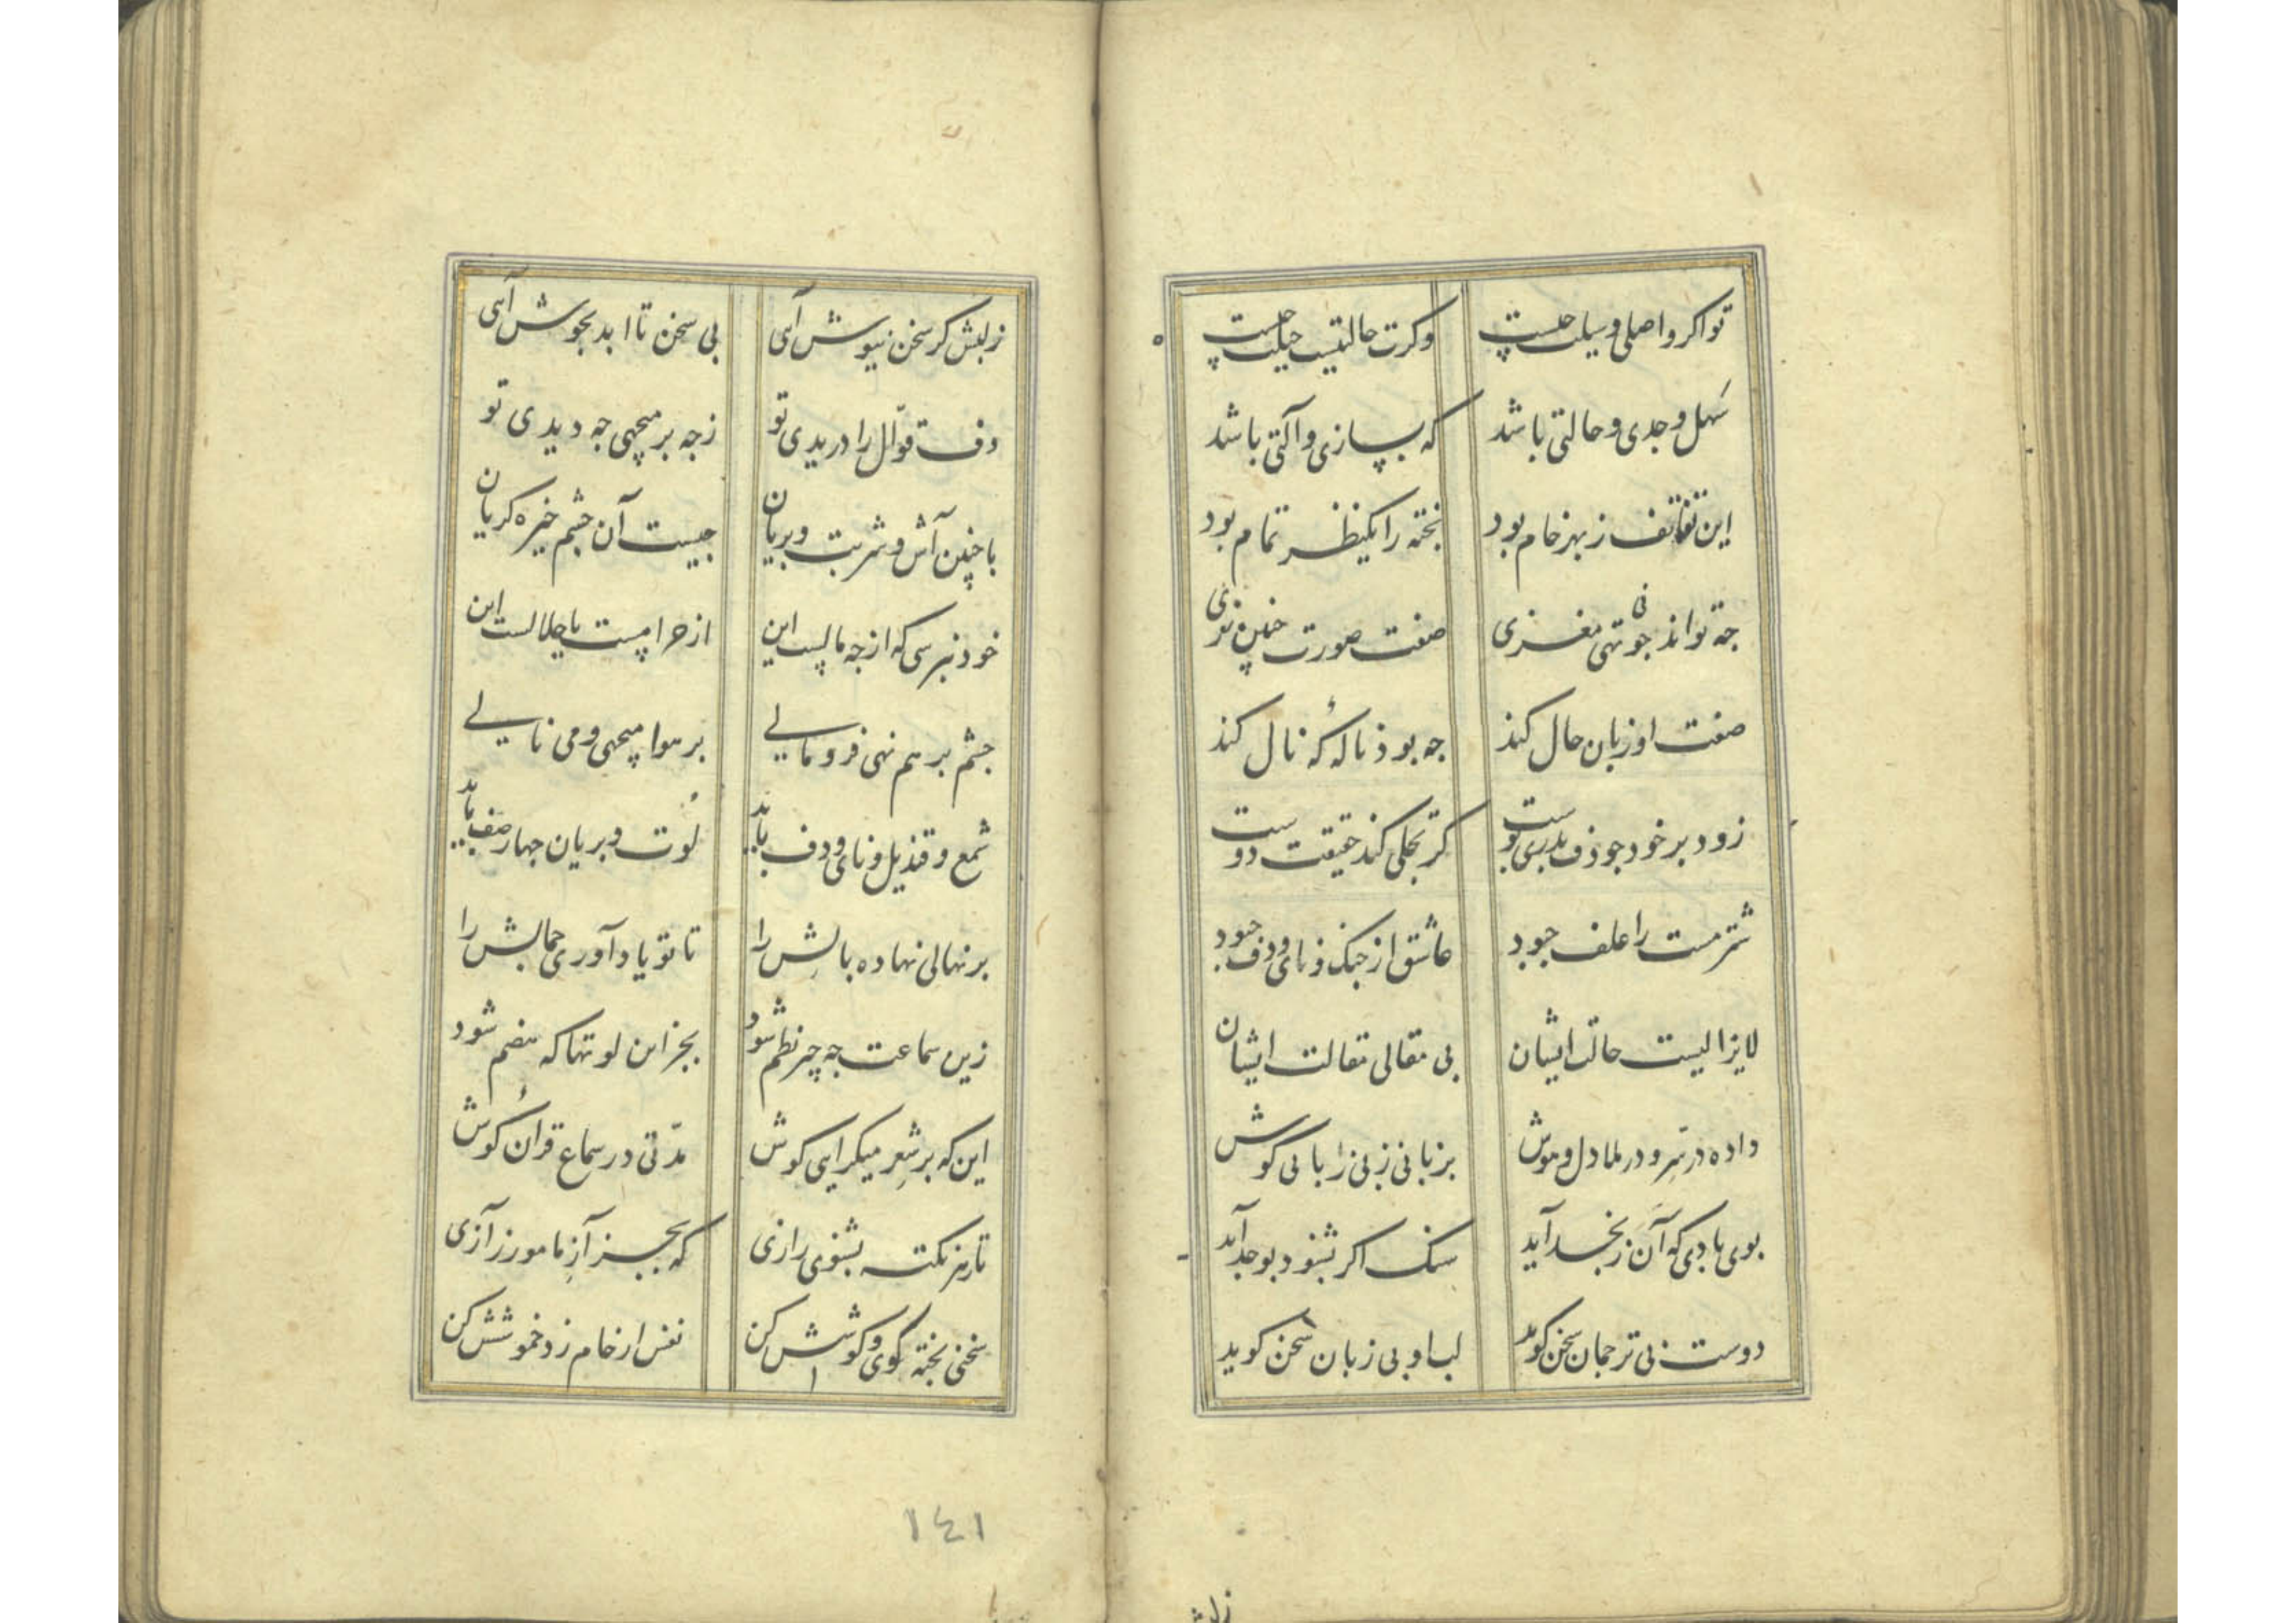 تو اکر واصلی وسیلت جیست وکرت حالتیست حیلت جیست
سهل وجدی و حالتی باشد که بسازی و آلتی باشد
این تف تف ز بهر خام بود پخته را یکنظر تمام بود
جه تواند جونی تهی مغزی صفت صورت جنین نغزی
صفت او زبان حال کند جه بود ناله که نال کند
زود بر خود جو دف بدری پوست کر تجلی کند حقیقت دوست
شتر مست را علف جبود عاشق از جنک و نای و دف جبود
لایزالیست حالت ایشان بی مقالی مقالت ایشان
داده در سر و در ملا دل و هوش بزبانی ز بی زبانی کوش
بوی بادی که آن ز نجد آید سنک اکر بشنود بوجد آید
دوست بی ترجمان سخن کوید لب او بی زبان سخن کوید
زلبش کر سخن نیوش آیی بی سخن تا ابد بجوش آیی
دف قوّال را دریدی تو زجه بر میجهی جه دیدی تو
با جنین آش و شربت و بریان جیست آن جشم خیره کریان
خود نپرسی که از جه مالست این از حرامست یا حلالست این
جشم بر هم نهی فرو مالی بر هوا میجهی و می نالی
شمع و قندیل و نای و دف باید لوت و بریان جهار صف باید
بر نهالی نهاده بالش را تا تو یاد آوری جمالش را
زین سماعت جه جیز نظم شود بجز این لوتها که هضم شود
این که بر شعر میکرایی کوش مدّتی در سماع قرآن کوش
تا ز هر نکته بشنوی رازی که بجز آز ما مورز آزی
سخنی پخته کوی و کوشش کن نفس ار خام زد خموشش کن
۱٤۱